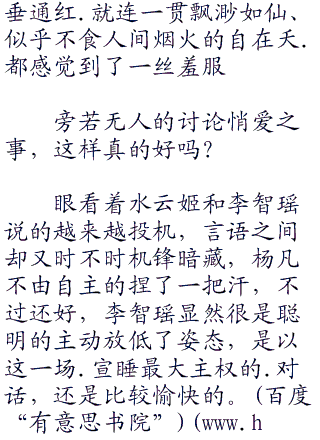 垂通红.就连一贯飘渺如仙、
似乎不食人间烟火的自在天.
都感觉到了一丝羞服
旁若无人的讨论悄爱之
事，这样真的好吗？
眼看着水云姬和李智瑶
说的越来越投机，言语之间
却又时不时机锋暗藏，杨凡
不由自主的捏了一把汗，不
过还好，李智瑶显然很是聪
明的主动放低了姿态，是以
这一场.宣睡最大主权的.对
话，还是比较愉快的。(百度
“有意思书院”)(www.h